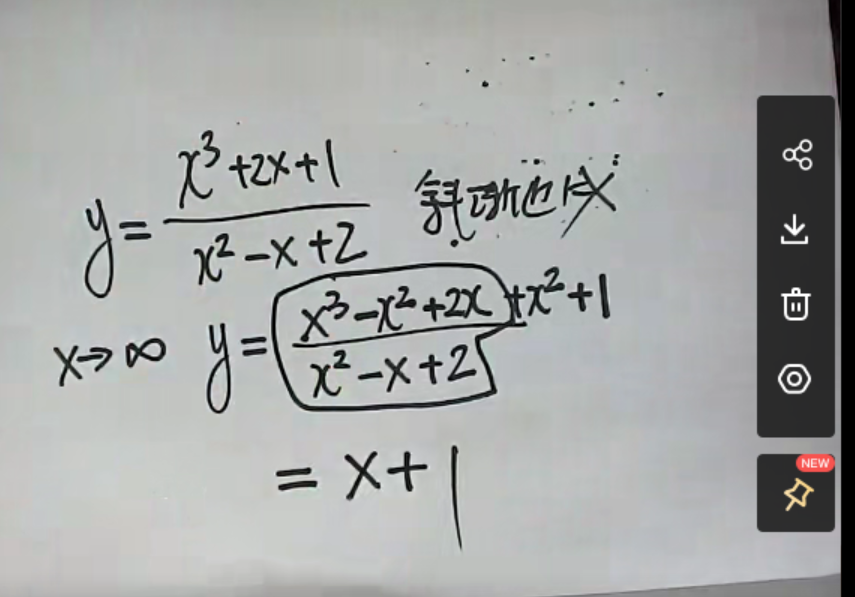 y = (x³+2x+1)/(x²-x+2) 斜渐近
x→∞ y = (x³-x²+2x+x²+1)/(x²-x+2)
= x+1
NEW